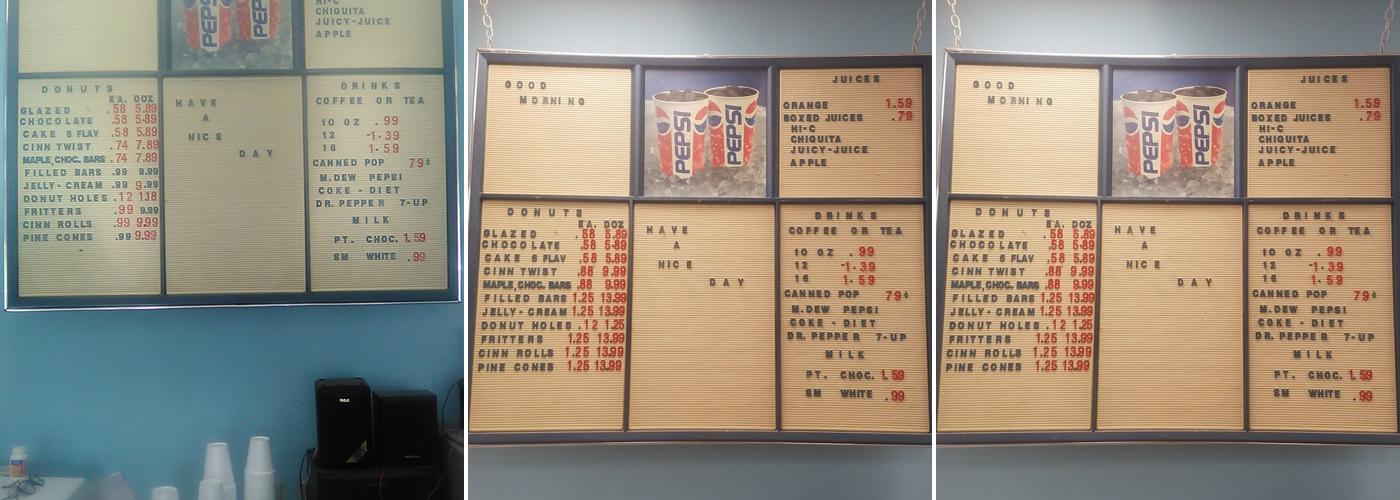 HI-C
CHIQUITA
JUICY-JUICE
APPLE
PEPSI
PEPSI
DONUTS
EA. DOZ
GLAZED .58 5.89
CHOCOLATE .58 5.89
CAKE 6 FLAV .58 5.89
CINN TWIST .74 7.89
MAPLE,CHOC. BARS .74 7.89
FILLED BARS .99 9.99
JELLY-CREAM .99 9.99
DONUT HOLES .12 1.18
FRITTERS .99 9.99
CINN ROLLS .99 9.99
PINE CONES .99 9.99
HAVE
A
NICE
DAY
DRINKS
COFFEE OR TEA
10 OZ .99
12 -1.39
16 1.59
CANNED POP 79¢
M.DEW PEPSI
COKE - DIET
DR. PEPPER 7-UP
MILK
PT. CHOC. 1.59
SM WHITE .99
RCA
GOOD
MORNING
PEPSI
PEPSI
JUICES
ORANGE 1.59
BOXED JUICES .79
HI-C
CHIQUITA
JUICY-JUICE
APPLE
DONUTS
EA. DOZ
GLAZED .58 5.89
CHOCOLATE .58 5.89
CAKE 6 FLAV .58 5.89
CINN TWIST .88 9.99
MAPLE,CHOC. BARS .88 9.99
FILLED BARS 1.25 13.99
JELLY-CREAM 1.25 13.99
DONUT HOLES .12 1.25
FRITTERS 1.25 13.99
CINN ROLLS 1.25 13.99
PINE CONES 1.25 13.99
HAVE
A
NICE
DAY
DRINKS
COFFEE OR TEA
10 OZ .99
12 -1.39
16 1.59
CANNED POP 79¢
M.DEW PEPSI
COKE - DIET
DR. PEPPER 7-UP
MILK
PT. CHOC. 1.59
SM WHITE .99
GOOD
MORNING
PEPSI
PEPSI
JUICES
ORANGE 1.59
BOXED JUICES .79
HI-C
CHIQUITA
JUICY-JUICE
APPLE
DONUTS
EA. DOZ
GLAZED .58 5.89
CHOCOLATE .58 5.89
CAKE 6 FLAV .58 5.89
CINN TWIST .88 9.99
MAPLE,CHOC. BARS .88 9.99
FILLED BARS 1.25 13.99
JELLY-CREAM 1.25 13.99
DONUT HOLES .12 1.25
FRITTERS 1.25 13.99
CINN ROLLS 1.25 13.99
PINE CONES 1.25 13.99
HAVE
A
NICE
DAY
DRINKS
COFFEE OR TEA
10 OZ .99
12 -1.39
16 1.59
CANNED POP 79¢
M.DEW PEPSI
COKE - DIET
DR. PEPPER 7-UP
MILK
PT. CHOC. 1.59
SM WHITE .99